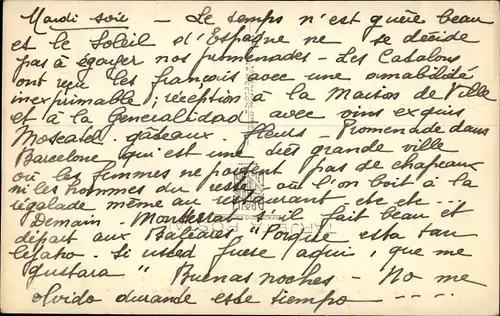 Mardi soir - Le temps n'est guère beau
et le Soleil d'Espagne ne se décide
pas à égayer nos promenades - Les Catalans
ont reçu les français avec une amabilité
inexprimable ; réception à la Maison de Ville
et à la Generalidad avec vins exquis
Moscatel gâteaux fleurs - Promenade dans
Barcelone qui est une très grande ville
où les femmes ne portent pas de chapeaux
ni les hommes du reste - où l'on boit à la
régalade même au restaurant etc etc ...
Demain - Montserrat s'il fait beau et
départ aux Baléares. "Porque esta tan
lejaho. Si usted fuese aqui, que me
gustara" Buenas noches - No me
olvido durande este tiempo - - - -